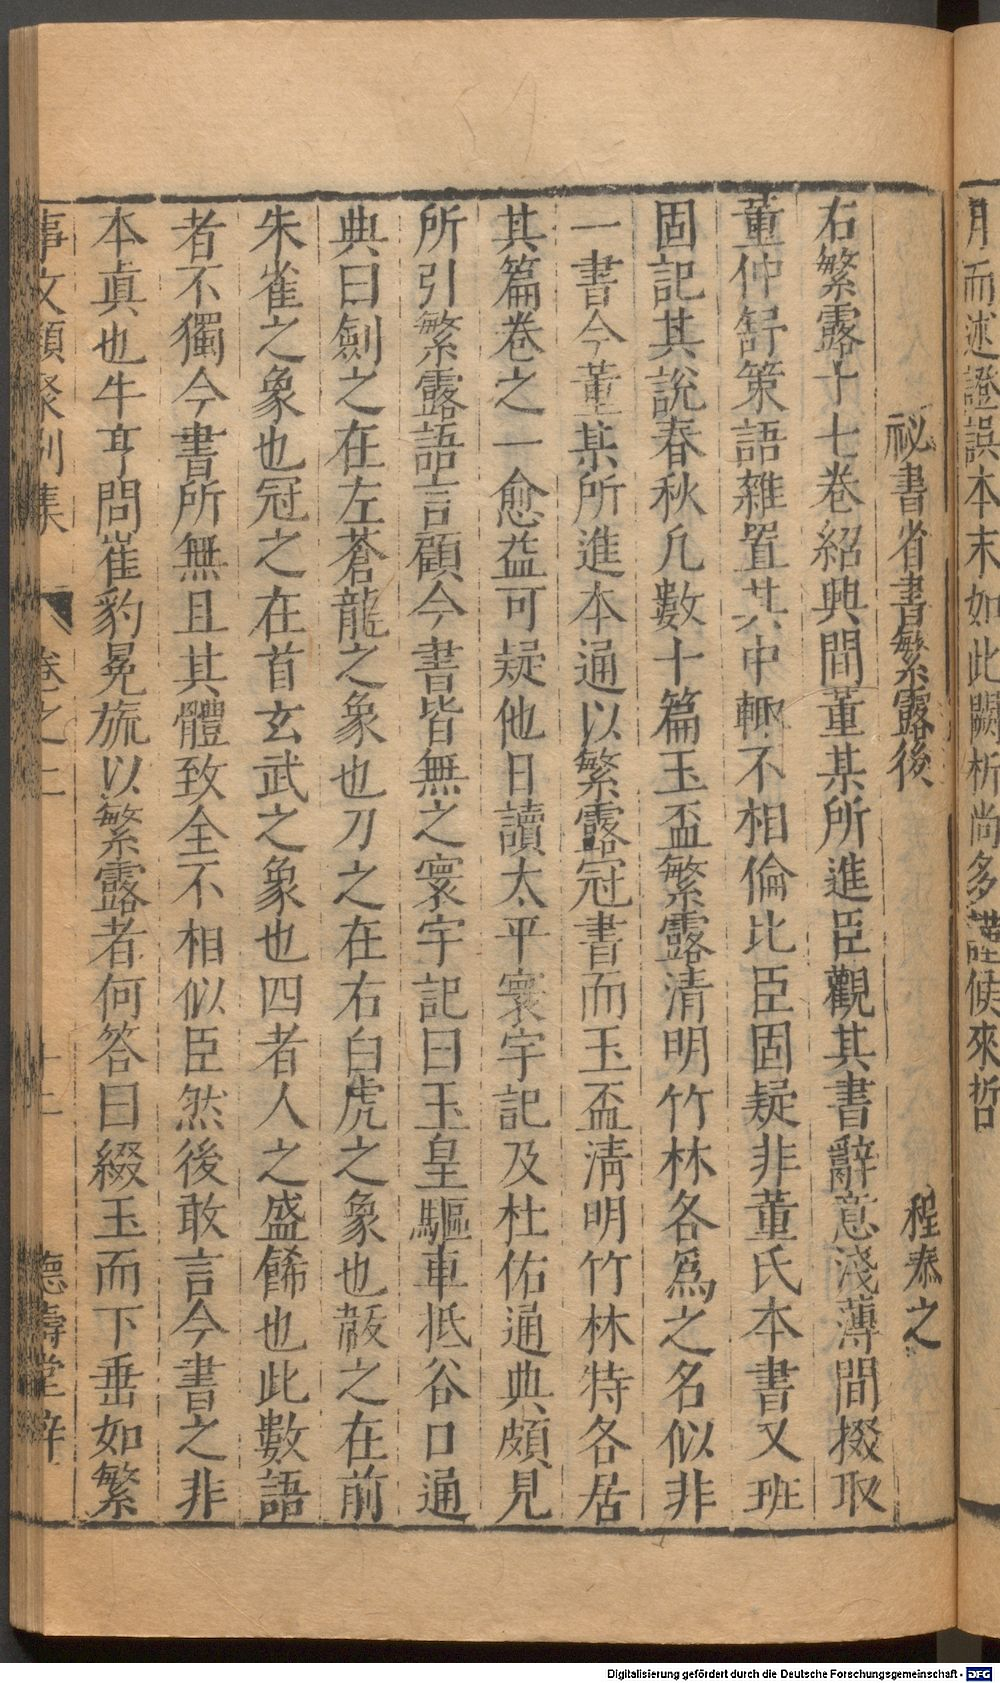 月而述證誤本末如此闕析尚多謹候來哲
祕書省書繁露後
程泰之
右繁露十七巻紹興間董某所進臣觀其書辭意淺薄間掇取
董仲舒策語雜置其中輒不相倫比臣固疑非董氏本書又班
固記其説春秋凡數十篇玉盃繁露清明竹林各爲之名似非
一書今董某所進本通以繁露冠書而玉盃清明竹林特各居
其篇巻之一愈益可疑他日讀太平寰宇記及杜佑通典頗見
所引繁露語言顧今書皆無之寰宇記曰玉皇驅車抵谷口通
典曰劍之在左蒼龍之象也刀之在右白虎之象也韍之在前
朱雀之象也冠之在首玄武之象也四者人之盛餙也此數語
者不獨今書所無且其體致全不相似臣然後敢言今書之非
本真也牛亨問崔豹冕旒以繁露者何答曰綴玉而下垂如繁
事文類聚別集
卷之二
十二
德壽堂梓
Digitalisierung gefördert durch die Deutsche Forschungsgemeinschaft - DFG